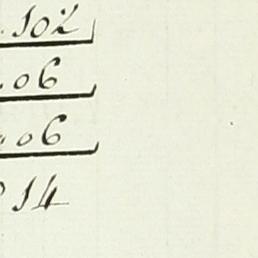 102
06
06
14